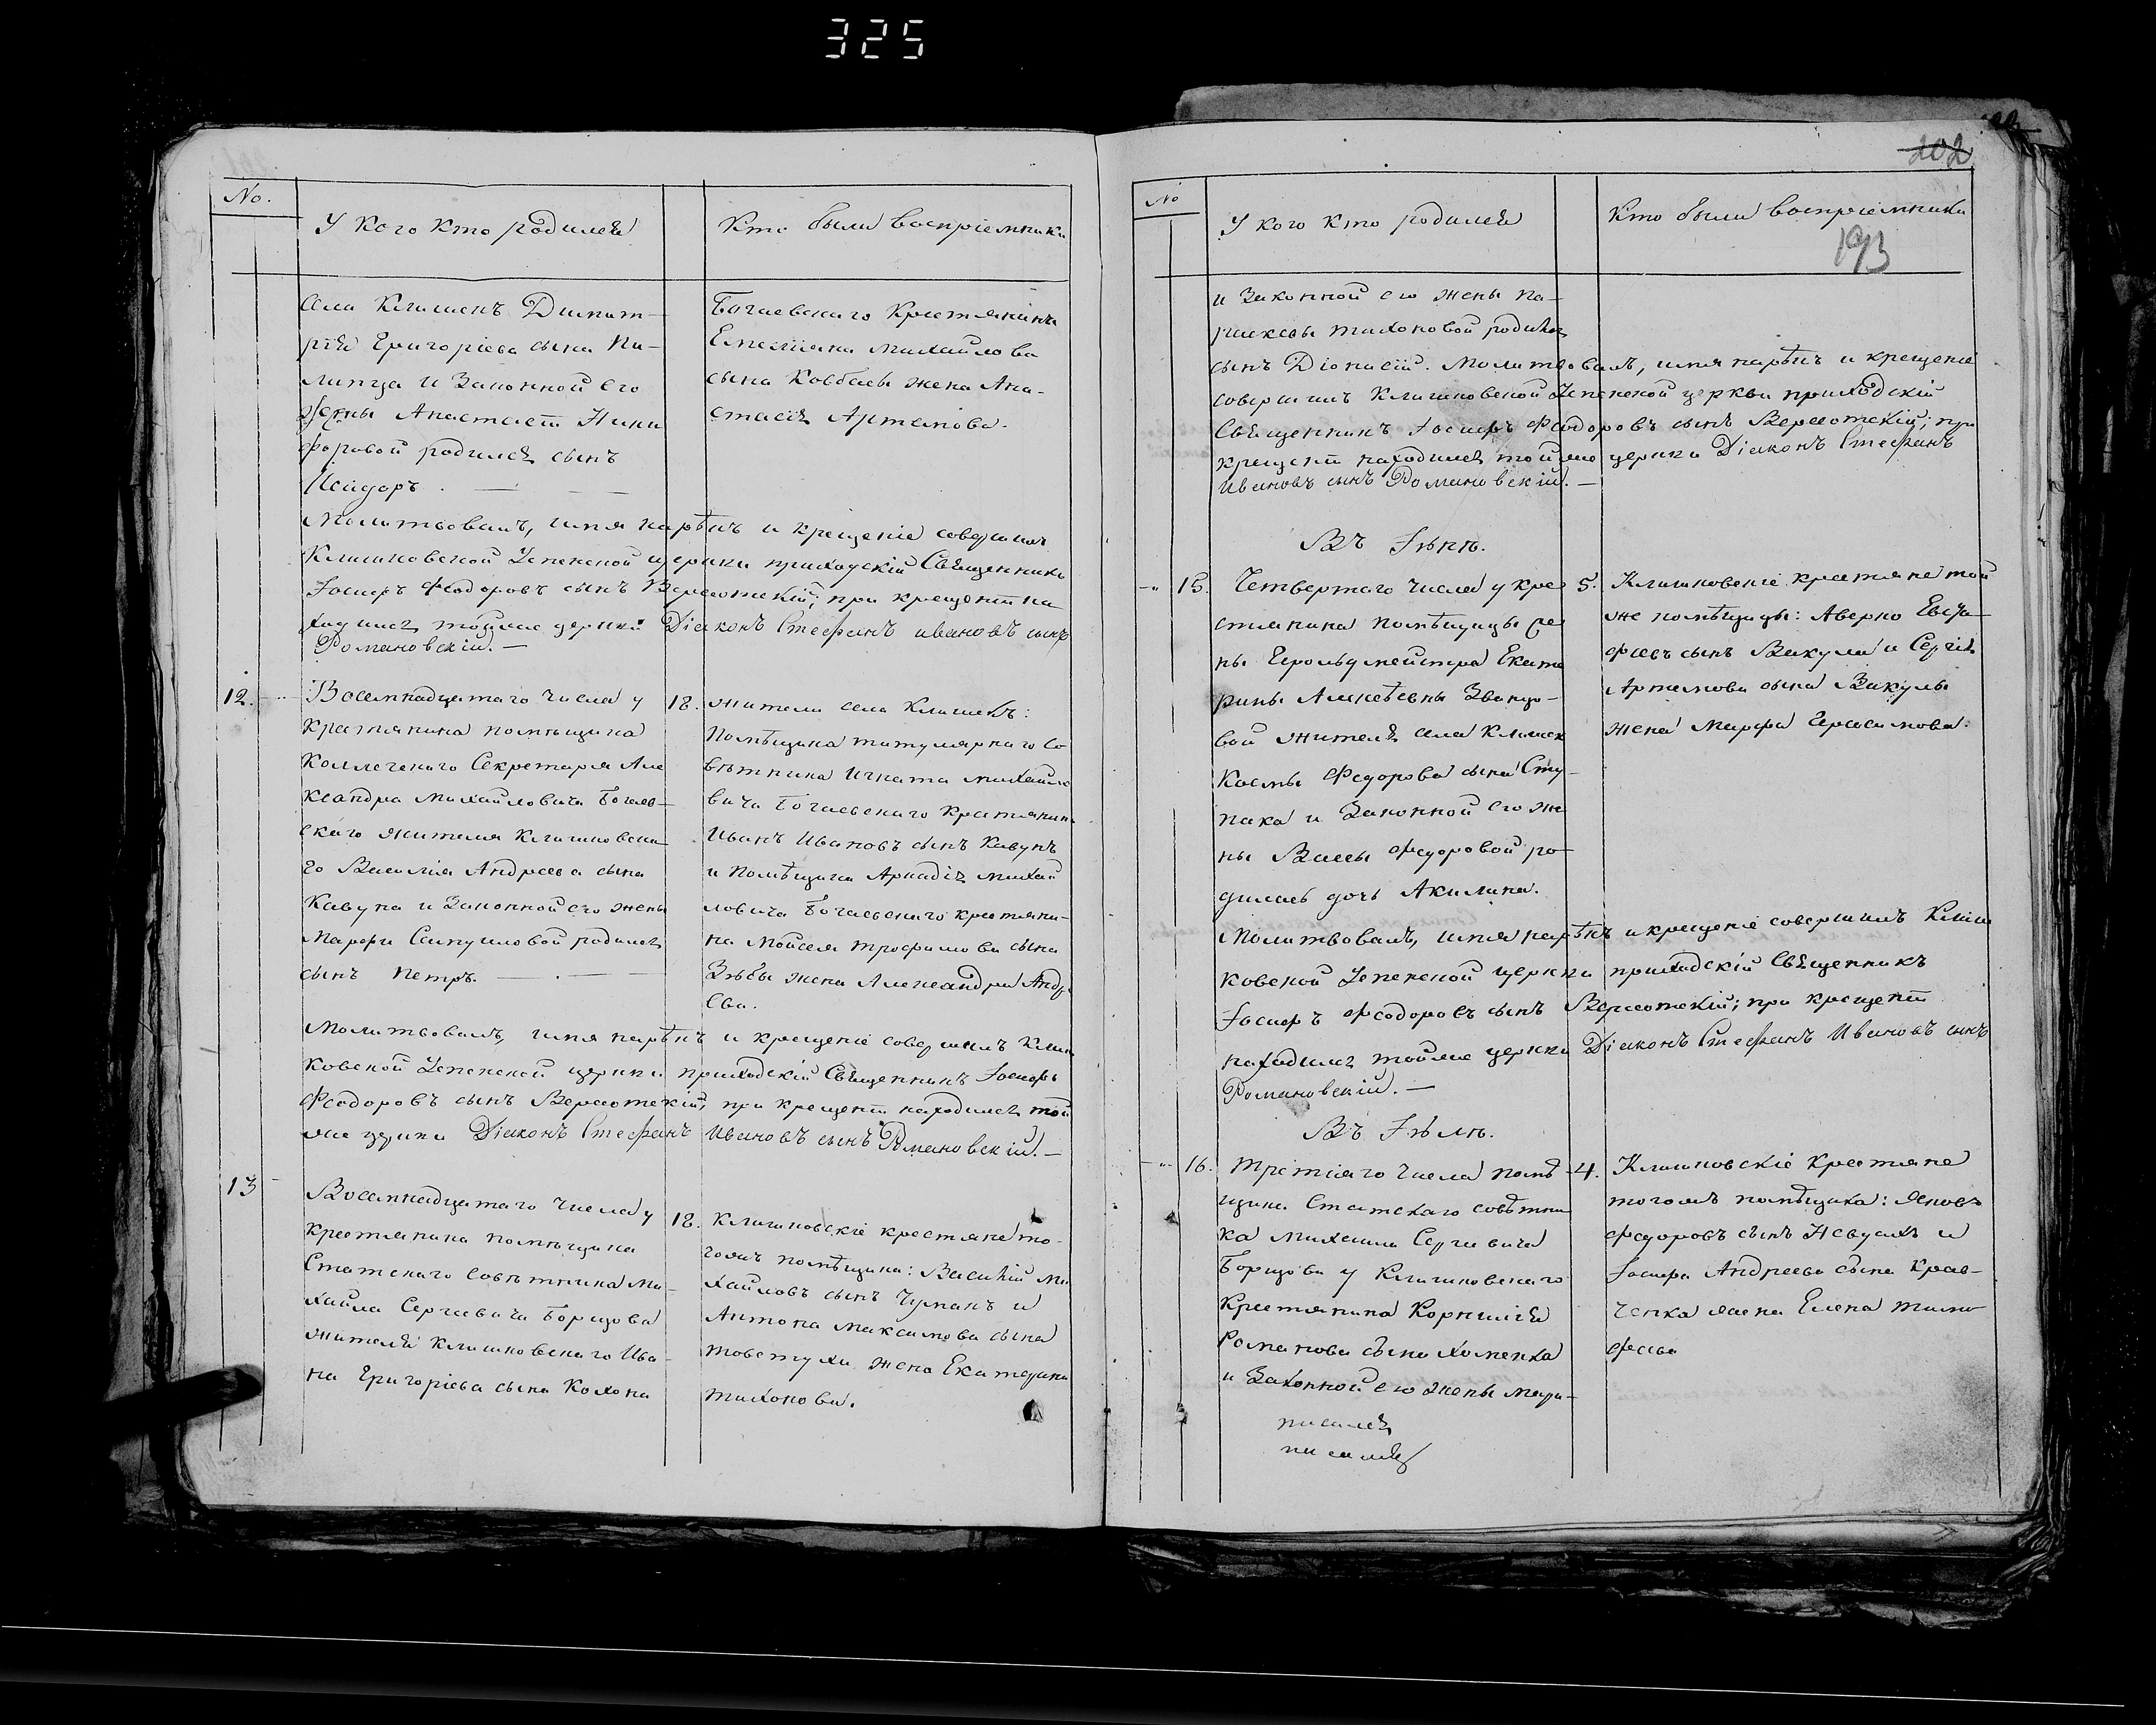 325
No.
У кого кто родился
Кто были воспріемники
села Климекъ Димит-
рія Григоріева сына Пи-
липца и Законной его
Жены Анастасіи Ники
форовой родился сынъ
Исидоръ.
Богаевскаго Крестянина
Емеліяна Михайлова
сына Ковбасы жена Ана-
стасія Артемова.
Молитвовалъ, имя нарѣкъ и крещеніе совершилъ
Клишковской Успенской церкви приходскій Священникъ
Іосифъ Феодоровъ сынъ Вересотскій; при крещеніи на
ходился тойже церкви Діаконъ Стефанъ ивановъ сынъ
Романовскій.
12.
Восемнадцатаго числа у
крестянина помѣщика
Коллежскаго Секретаря Але
ксандра Михайловича Богаев-
скаго жителя Клишковска-
го Василія Андреева сына
Кавуна и Законной его жены
Марфи Самуиловой родился
сынъ Петръ.
18. жители села Клишекъ:
Помѣщика титулярнаго Со
вѣтника Игната Михайло
вича Богаевскаго крестянинъ
Иванъ Ивановъ сынъ Кавунъ
и Помѣщика Аркадія Михай
ловича Богаевскаго крестяни-
на Мойсея Трофимова сына
Зюбы жена Александра Андре
ева.
Молитвовалъ, имя нарѣкъ и крещеніе совершилъ Клиш
ковской Успенской церкви приходскій Священникъ Іосифъ
Феодоровъ сынъ Вересотскій; при крещеніи находился той
же церкви Діаконъ Стефанъ Ивановъ сынъ Романовскій.
13
Восемнадцатаго числа у
крестянина помѣщика
Статскаго совѣтника Ми-
хайла Сергиевича Борщова
жителя Клишковскаго Ива-
на Григоріева сына Кохона
18. Клишковскіе крестяне то-
гожъ помѣщика: Василій Ми
хайловъ сынъ Чуманъ и
Антона Максимова сына
Товстухи жена Екатерина
Тихонова.
202
No
У кого кто родился
Кто были воспріемники
193
и Законной его жены Па-
раскевы Тихоновой родился
сынъ Діонисій. Молитвовалъ, имя нарѣкъ и крещеніе
совершилъ Клишковской Успенской церкви приходскій
Священникъ Іосифъ Феодоровъ сынъ Вересотскій; при
крещеніи находился тойже церкви Діаконъ Стефанъ
Ивановъ сынъ Романовскій.
Въ Іюнѣ.
15.
Четвертаго числа у кре
стянина помѣщицы
ны Герольдмейстра Екате
рины Алексѣевны Званцо-
вой жителя села Клишек
Космы Федорова сына Сту-
пака и Законной его же
ны Вассы Федоровой ро-
дилась дочь Акилина.
5. Клишковскіе крестяне той
же помѣщицы: Аверко Евста-
фіевъ сынъ Викула и Сергія
Артемова сына Викулы
жена Марфа Герасимова.
Молитвовалъ, имя нарѣкъ и крещеніе совершилъ Клиш
ковской Успенской церкви приходскій Священникъ
Іосифъ Феодоровъ сынъ Вересотскій; при крещеніи
находился тойже церкви Діаконъ Стефанъ Ивановъ сынъ
Романовскій.
Въ Іюлѣ.
16.
Третіяго числа помѣ
щика Статскаго совѣтни
ка Михаила Сергиевича
Борщова у Клишковскаго
Крестянина Корнилія
Романова сына Хоменка
и Законной его жены Мари-
4. Клишковскіе Крестяне
тогожъ помѣщика: Яковъ
Федоровъ сынъ Невдахъ и
Іосифа Андреева сына Крав-
ченка жена Елена Тимо
феева
писался
писался